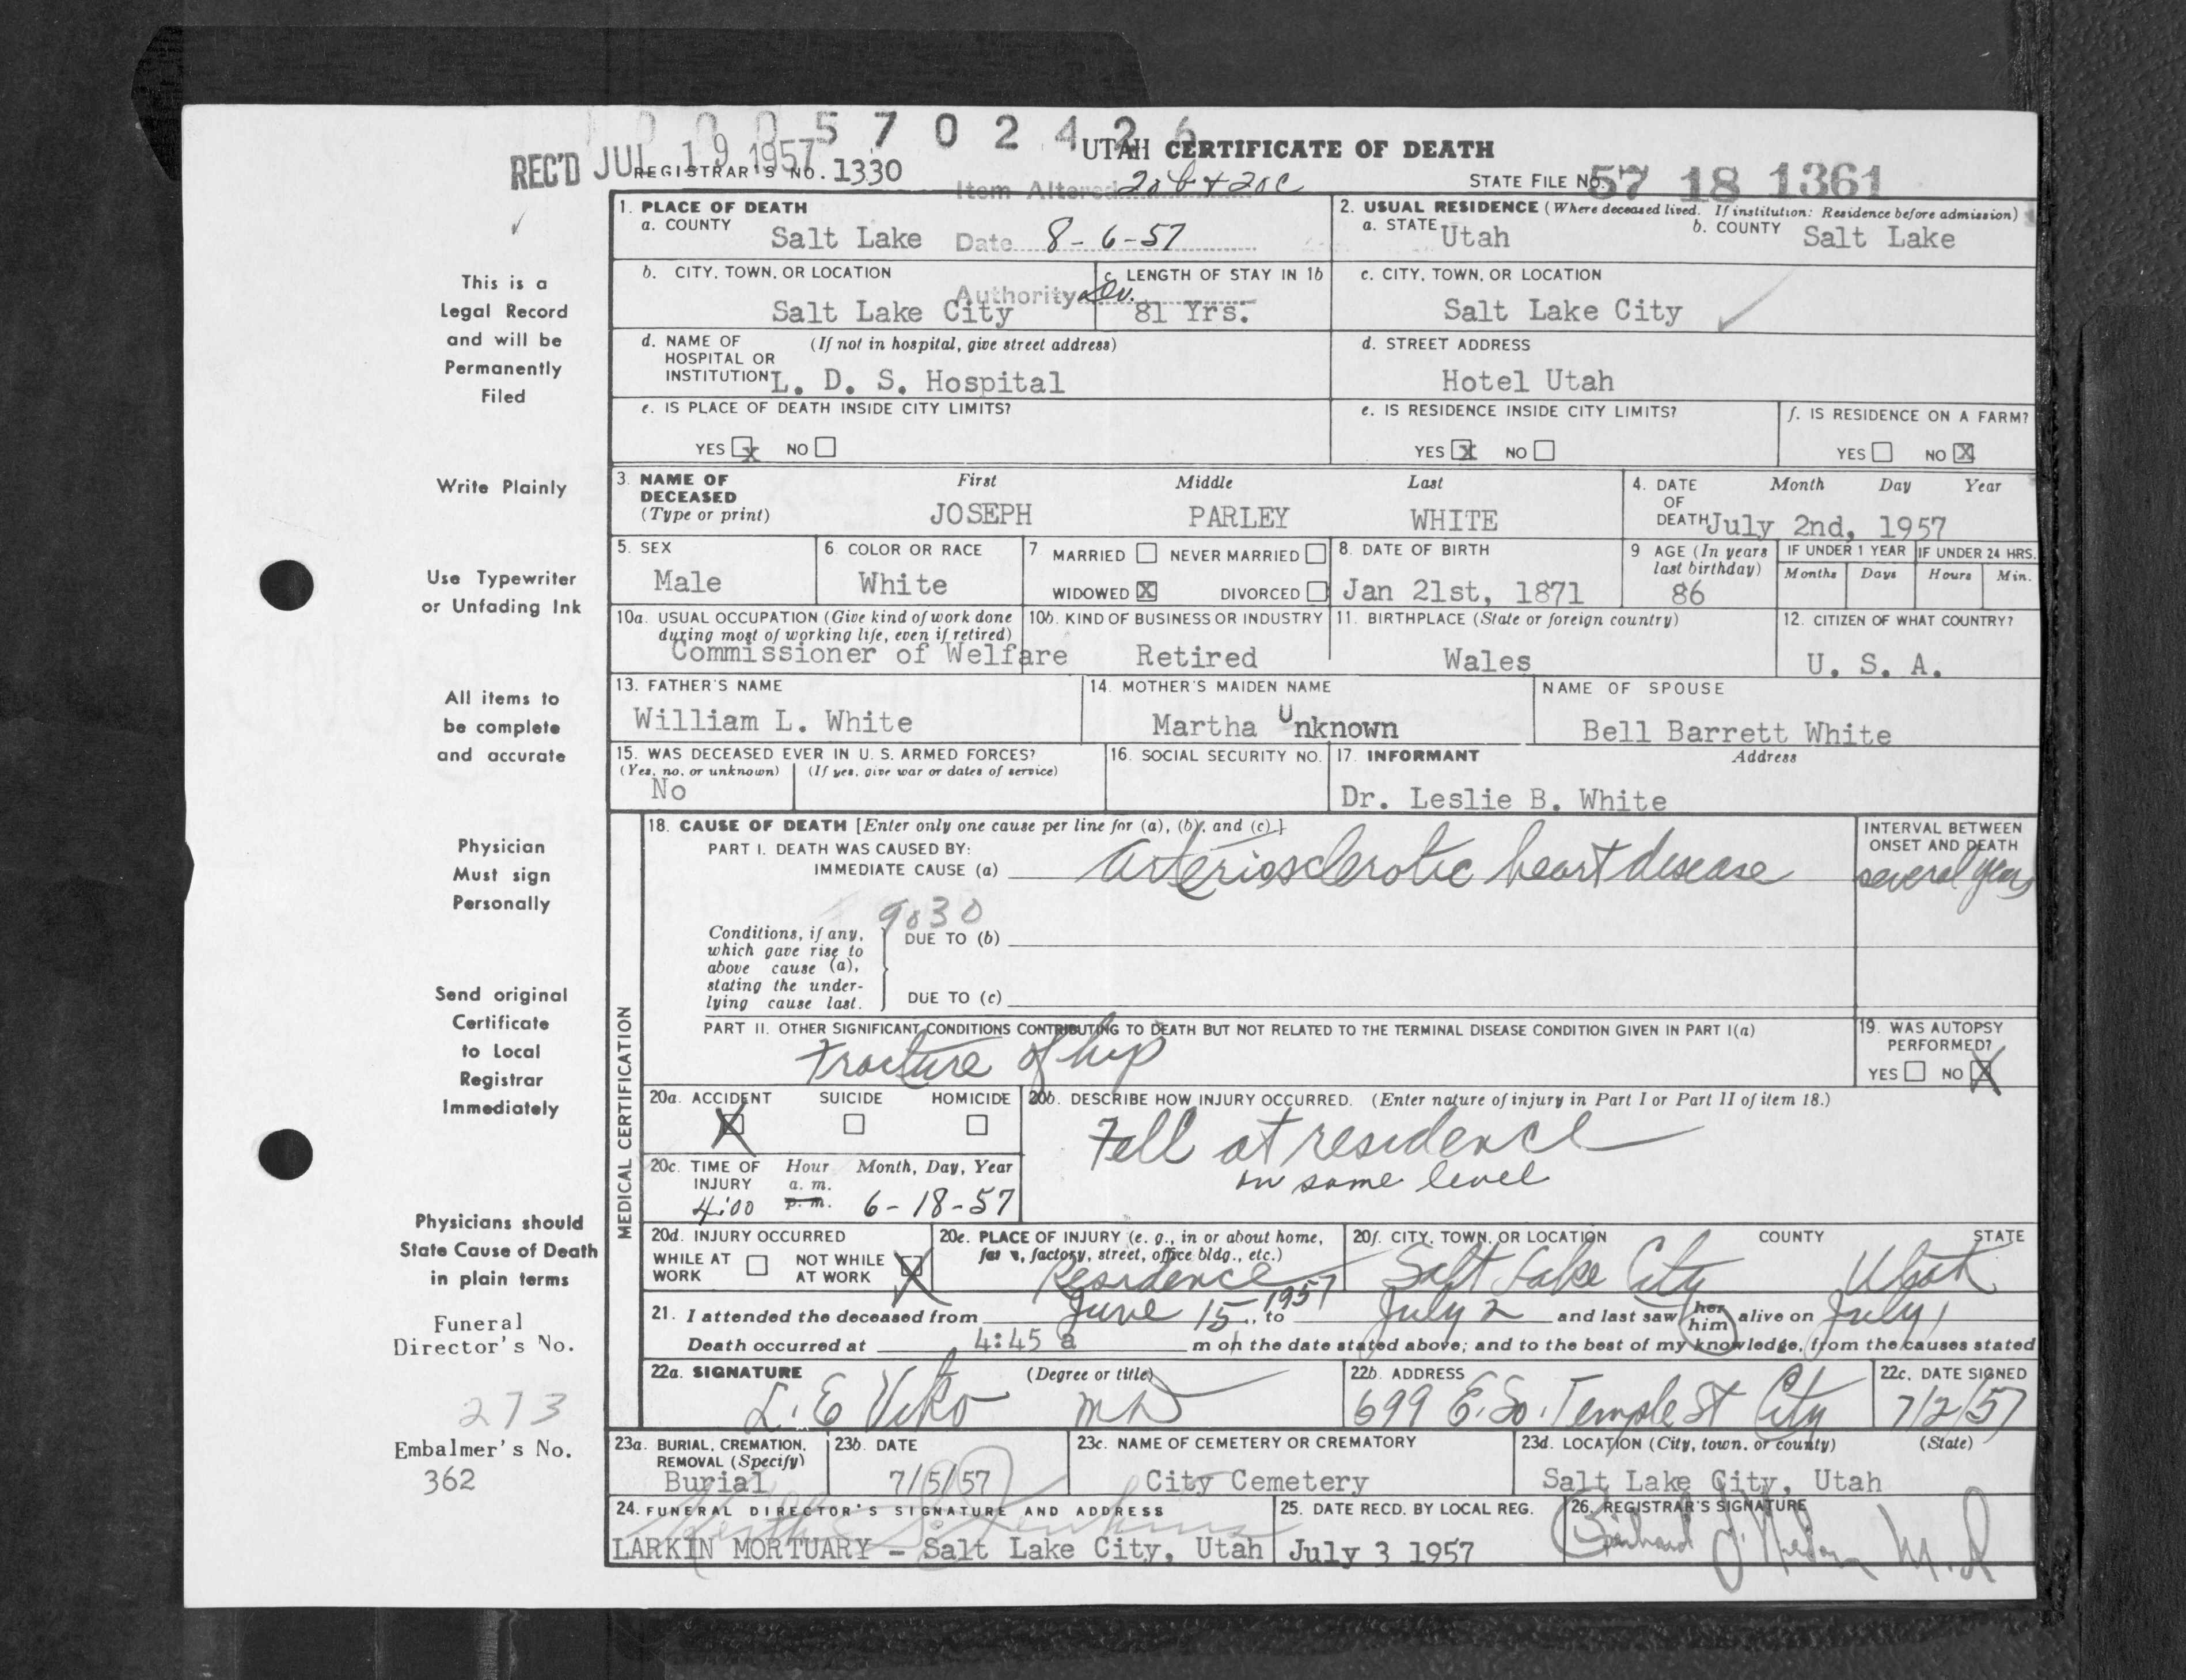 0 0 0 5 7 0 2 4 2 6
REC'D JUL 19 1957
UTAH CERTIFICATE OF DEATH
REGISTRAR'S NO. 1330
Item Altered 20b + 20c
STATE FILE NO. 57 18 1361
1. PLACE OF DEATH
a. COUNTY Salt Lake
Date 8-6-57
2. USUAL RESIDENCE (Where deceased lived. If institution: Residence before admission)
a. STATE Utah b. COUNTY Salt Lake
b. CITY, TOWN, OR LOCATION
Salt Lake City
Authority
c. LENGTH OF STAY IN 1b
81 Yrs.
c. CITY, TOWN, OR LOCATION
Salt Lake City
d. NAME OF HOSPITAL OR INSTITUTION (If not in hospital, give street address)
L. D. S. Hospital
d. STREET ADDRESS
Hotel Utah
e. IS PLACE OF DEATH INSIDE CITY LIMITS?
YES x NO
e. IS RESIDENCE INSIDE CITY LIMITS?
YES x NO
f. IS RESIDENCE ON A FARM?
YES NO X
3. NAME OF DECEASED (Type or print)
First Middle Last
JOSEPH PARLEY WHITE
4. DATE OF DEATH Month Day Year
July 2nd, 1957
5. SEX
Male
6. COLOR OR RACE
White
7 MARRIED NEVER MARRIED
WIDOWED X DIVORCED
8. DATE OF BIRTH
Jan 21st, 1871
9 AGE (In years last birthday)
86
IF UNDER 1 YEAR
Months Days
IF UNDER 24 HRS.
Hours Min.
10a. USUAL OCCUPATION (Give kind of work done during most of working life, even if retired)
Commissioner of Welfare
10b. KIND OF BUSINESS OR INDUSTRY
Retired
11. BIRTHPLACE (State or foreign country)
Wales
12. CITIZEN OF WHAT COUNTRY?
U. S. A.
13. FATHER'S NAME
William L. White
14. MOTHER'S MAIDEN NAME
Martha Unknown
NAME OF SPOUSE
Bell Barrett White
15. WAS DECEASED EVER IN U. S. ARMED FORCES?
(Yes, no, or unknown) (If yes, give war or dates of service)
No
16. SOCIAL SECURITY NO.
17. INFORMANT Address
Dr. Leslie B. White
MEDICAL CERTIFICATION
18. CAUSE OF DEATH [Enter only one cause per line for (a), (b), and (c).]
PART I. DEATH WAS CAUSED BY:
IMMEDIATE CAUSE (a) Arteriosclerotic heart disease
INTERVAL BETWEEN ONSET AND DEATH
several years
9030
Conditions, if any, which gave rise to above cause (a), stating the underlying cause last.
DUE TO (b)
DUE TO (c)
PART II. OTHER SIGNIFICANT CONDITIONS CONTRIBUTING TO DEATH BUT NOT RELATED TO THE TERMINAL DISEASE CONDITION GIVEN IN PART I(a)
Fracture of hip
19. WAS AUTOPSY PERFORMED?
YES NO X
20a. ACCIDENT SUICIDE HOMICIDE
X
20b. DESCRIBE HOW INJURY OCCURRED. (Enter nature of injury in Part I or Part II of item 18.)
Fell at residence
on same level
20c. TIME OF INJURY Hour Month, Day, Year
a. m.
p. m.
4:00 6-18-57
20d. INJURY OCCURRED
WHILE AT WORK NOT WHILE AT WORK X
20e. PLACE OF INJURY (e. g., in or about home, farm, factory, street, office bldg., etc.)
Residence
20f. CITY, TOWN, OR LOCATION COUNTY STATE
Salt Lake City Utah
21. I attended the deceased from June 15, 1957 to July 2 and last saw her him alive on July 1
Death occurred at 4:45 a m on the date stated above; and to the best of my knowledge, from the causes stated
22a. SIGNATURE (Degree or title)
L. E Viko MD
22b. ADDRESS
699 E. So. Temple St City
22c. DATE SIGNED
7/2/57
23a. BURIAL, CREMATION, REMOVAL (Specify)
Burial
23b. DATE
7/5/57
23c. NAME OF CEMETERY OR CREMATORY
City Cemetery
23d. LOCATION (City, town, or county) (State)
Salt Lake City, Utah
24. FUNERAL DIRECTOR'S SIGNATURE AND ADDRESS
LARKIN MORTUARY - Salt Lake City, Utah
25. DATE RECD. BY LOCAL REG.
July 3 1957
26. REGISTRAR'S SIGNATURE
M.D.
This is a
Legal Record
and will be
Permanently
Filed
Write Plainly
Use Typewriter
or Unfading Ink
All items to
be complete
and accurate
Physician
Must sign
Personally
Send original
Certificate
to Local
Registrar
Immediately
Physicians should
State Cause of Death
in plain terms
Funeral
Director's No.
273
Embalmer's No.
362